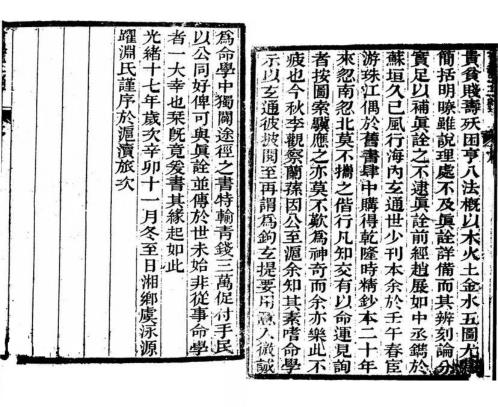 貴貧賤壽殀困亨八法概以木火土金水五圖尤
簡括明瞭雖說理處不及眞詮詳備而其辨刻論分
實足以補眞詮之不逮眞詮前經趙展如中丞鐫於
蘇垣久已風行海內玄通世少刊本余於壬午春宦
游珠江偶於舊書肆中購得乾隆時精鈔本二十年
來忽南忽北莫不攜之偕行凡知交有以命運見詢
者按圖索驥應之亦莫不歎爲神奇而余亦樂此不
疲也今秋李觀察蘭蓀因公至滬余知其素嗜命學
示以玄通彼披閱至再謂爲鉤玄提要用意入微誠
爲命學中獨闢途徑之書特輸青錢三萬促付手民
以公同好俾可與眞詮並傳於世未始非從事命學
者一大幸也槧旣竟爰書其緣起如此
光緒十七年歲次辛卯十一月冬至日湘鄉虞泳源
躍淵氏謹序於滬瀆旅次